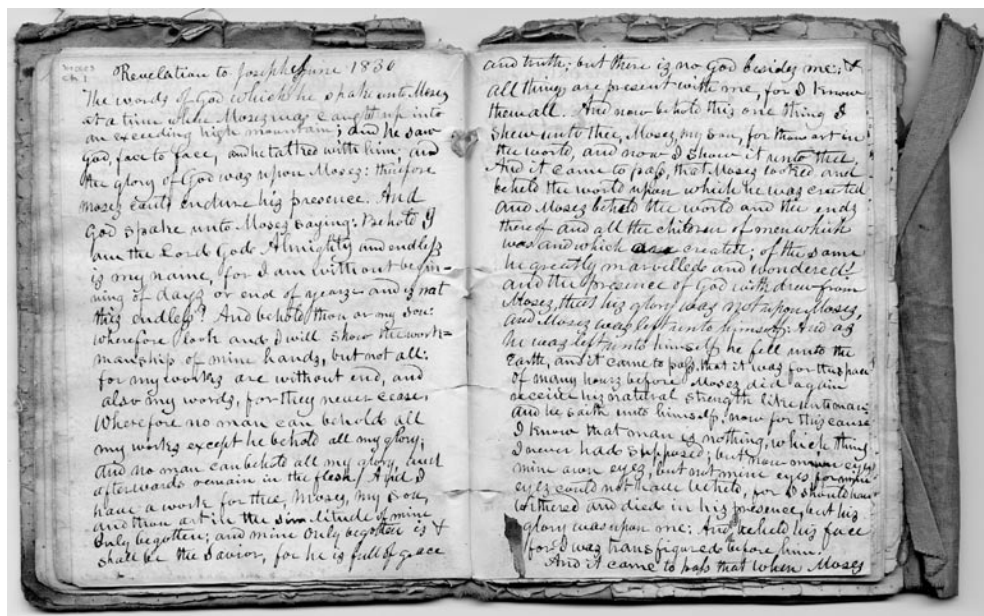 Moses
Ch. 1
Revelation to Joseph June 1830
The words of God which he spake unto Moses
at a time when Moses was caught up into
an exceeding high mountain; and he saw
God, face to face, and he talked with him, and
the glory of God was upon Moses: therefore
Moses could endure his presence. And
God spake unto Moses saying: Behold I
am the Lord God Almighty and endless
is my name, for I am without begin-
ning of days or end of years and is not
this endless? And behold thou art my son:
wherefore look and I will show the work=
manship of mine hands, but not all:
for my works are without end, and
also my words, for they never cease,
Wherefore no man can behold all
my works except he behold all my glory;
and no man can behold all my glory, and
afterwards remain in the flesh. And I
have a work for thee, Moses, my Son,
and thou art in the similitude of mine
Only begotten; and mine Only begotten is &
shall be the Savior, for he is full of grace
and truth; but there is no God besides me; &
all things are present with me, for I know
them all. And now behold this one thing I
shew unto thee, Moses, my son, for thou art in
the world, and now I show it unto thee,
And it came to pass, that Moses looked and
beheld the world upon which he was created
and Moses beheld the world and the ends
thereof and all the children of men which
was and which are created; of the same
he greatly marvilled and wondered!
and the presence of God withdrew from
Moses, that his glory was not upon Moses,
and Moses was left unto himself: And as
he was left unto himself he fell unto the
Earth, and it came to pass, that it was for the space
of many hours before Moses did again
receive his natural strength like unto man;
and he saith unto himself, now for this cause
I know that man is nothing, which thing
I never had supposed; but now mine eyes
mine own eyes, but not mine eyes for mine
eyes could not have beheld, for I should have
withered and died in his presence, but his
glory was upon me: And I beheld his face
for I was transfigured before him.
And it came to pass that when Moses